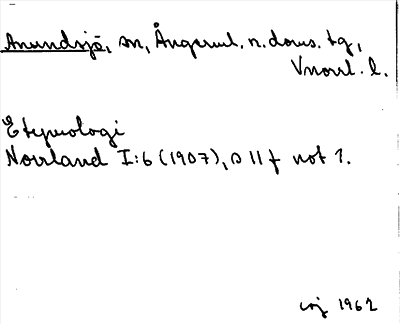 Anundsjö, sn, Ångerml. n. doms. tg,
Vnorrl. l.
Etymologi
Norrland I:6 (1907), s 11 f not 1.
1962